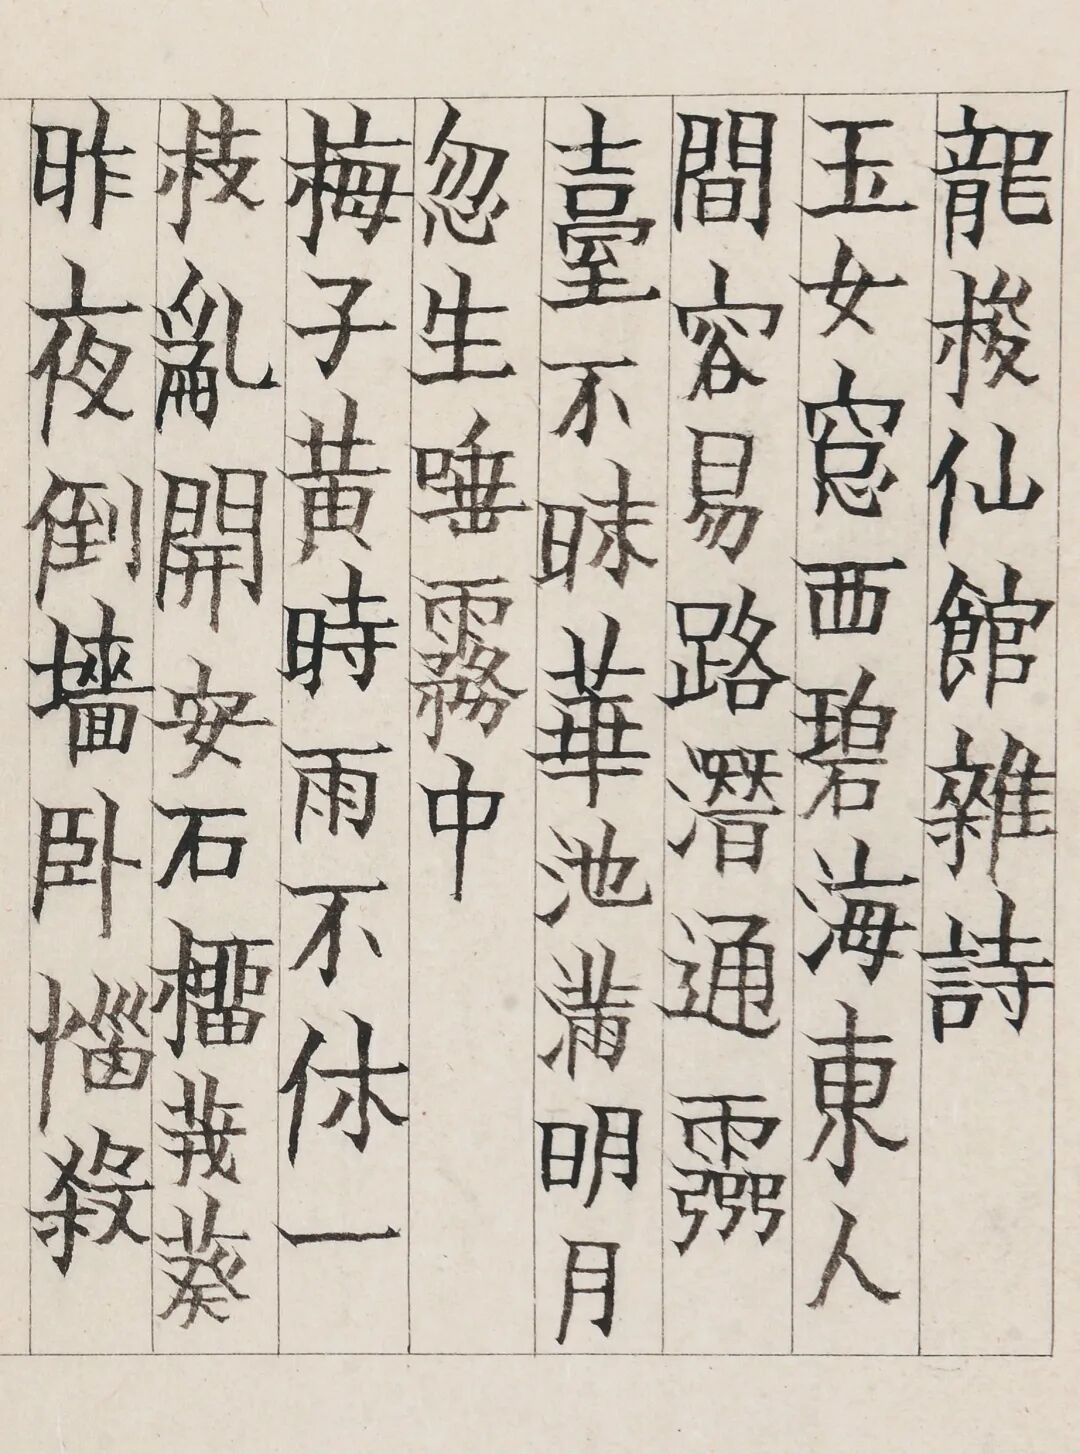 龍梭仙館雜詩
玉女窓西碧海東人
間容易路潛通靈
臺不昧華池滿明月
忽生唾霧中
梅子黄時雨不休一
枝亂開安石橊茙葵
昨夜倒墻卧惱殺